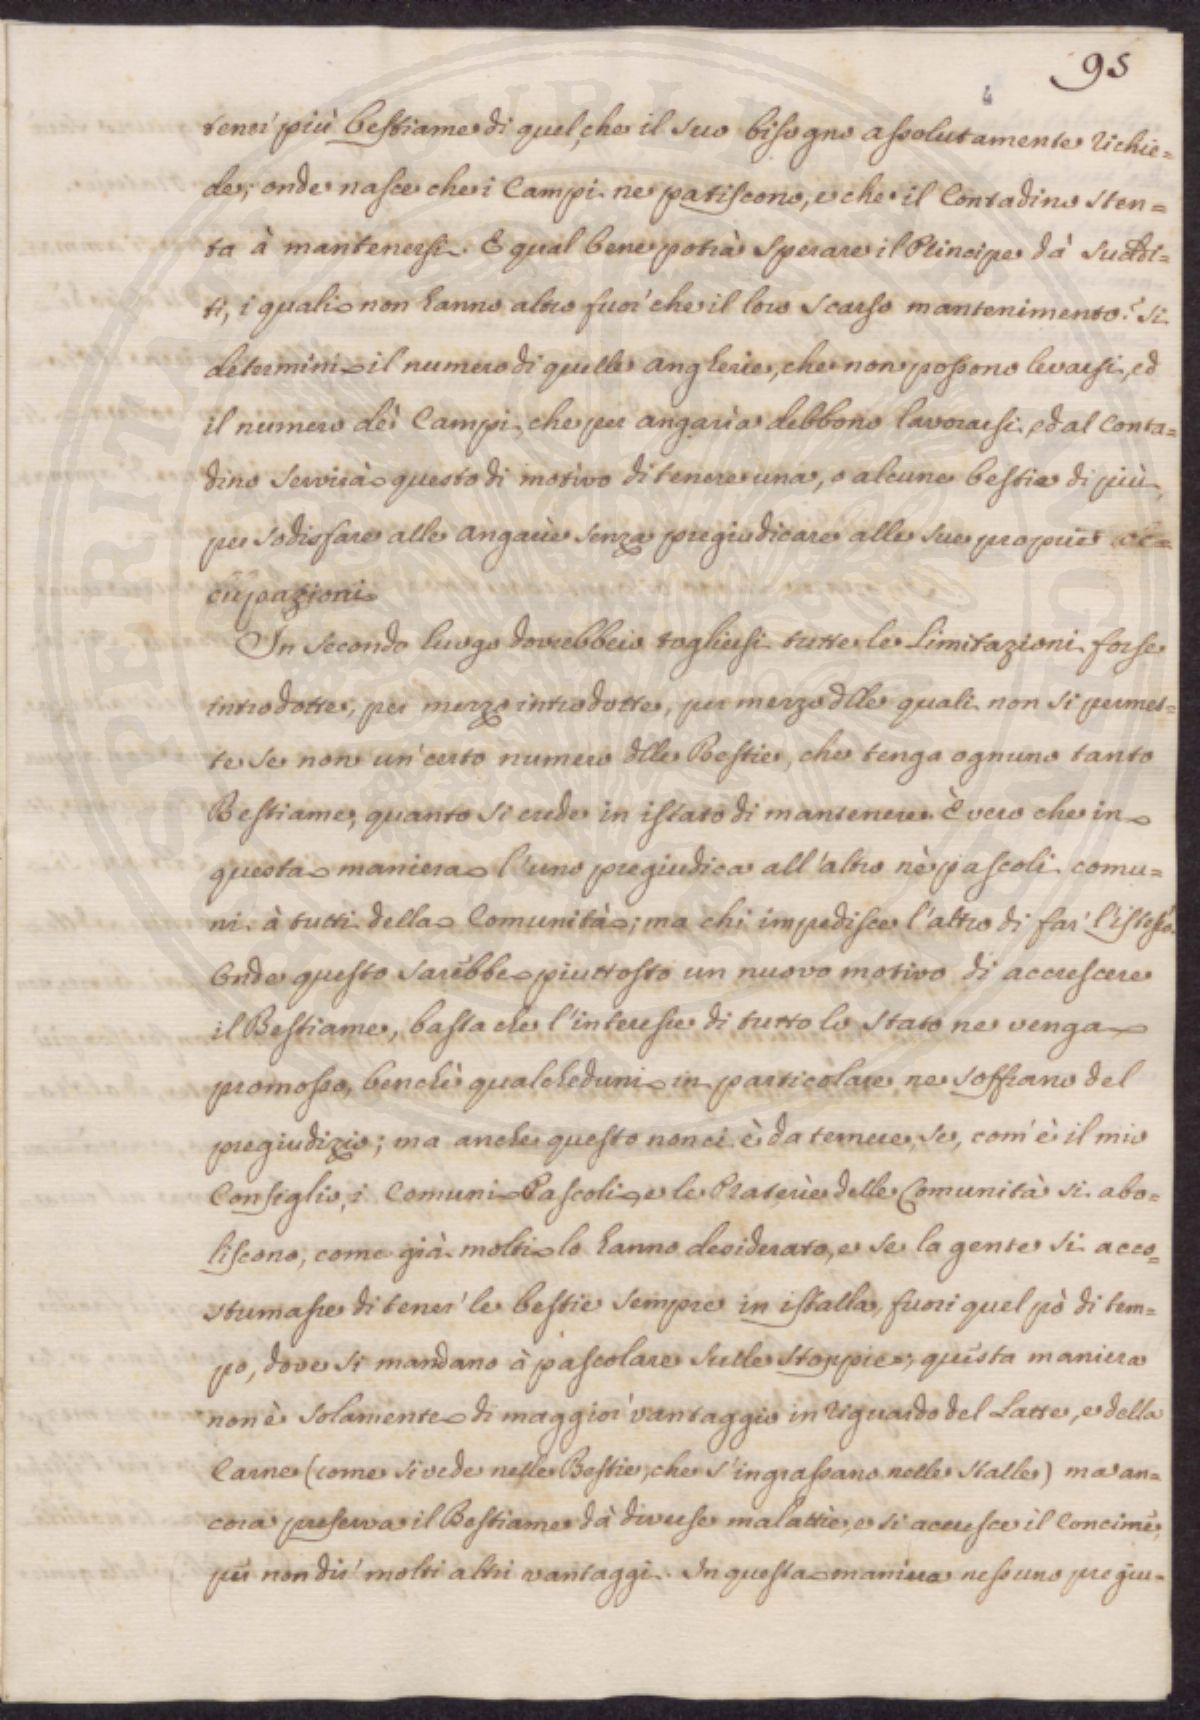 95
4
tener' più bestiame di quel, che il suo bisogno assolutamente richie=
de, onde nasce che i Campi ne patiscono, e che il Contadino sten=
ta à mantenersi. E qual bene potrà sperare il Principe dà suddi=
ti, i quali non hanno altro fuor' che il loro scarso mantenimento? Si
determini il numero di quelle angherie, che non possono levarsi, ed
il numero dè Campi, che per angaria debbono lavorarsi, ed al Conta=
dino servirà questo di motivo di tenere una, o alcune bestie di più,
per sodisfare alle angarie senza pregiudicare alle sue proprie oc=
cupazioni.
In secondo luogo dovrebbero togliersi tutte le Limitazioni forse
introdotte, per mezzo introdotte, per mezzo dlle quali non si permet=
te se non un' certo numero dlle Bestie, che tenga ognuno tanto
Bestiame, quanto si crede in istato di mantenere. È vero che in
questa maniera l'uno pregiudica all'altro nè pascoli comu=
ni à tutti della Comunità; ma chi impedisce l'altro di far' l'istesso.
Onde questo sarebbe piuttosto un nuovo motivo di accrescere
il Bestiame, basta che l'interesse di tutto lo Stato ne venga
promosso, benchè qualcheduni in particolare ne soffrano del
pregiudizio; ma anche questo non ci è da temere, se, com' è il mio
Consiglio, i Comuni Pascoli, e le Praterie delle Comunità si abo=
liscono, come già molti lo hanno desiderato, e se la gente si acco=
stumasse di tener' le bestie sempre in istalla, fuori quel pò di tem=
po, dove si mandano à pascolare sulle stoppie; questa maniera
non è solamente di maggior' vantaggio in riguardo del Latte, e della
Carne (come si vede nelle Bestie, che s'ingrassano nelle stalle) ma an=
cora preserva il Bestiame dà diverse malattie, e si accresce il Concime,
per non dir' molti altri vantaggi. In questa maniera nessuno pregiu=